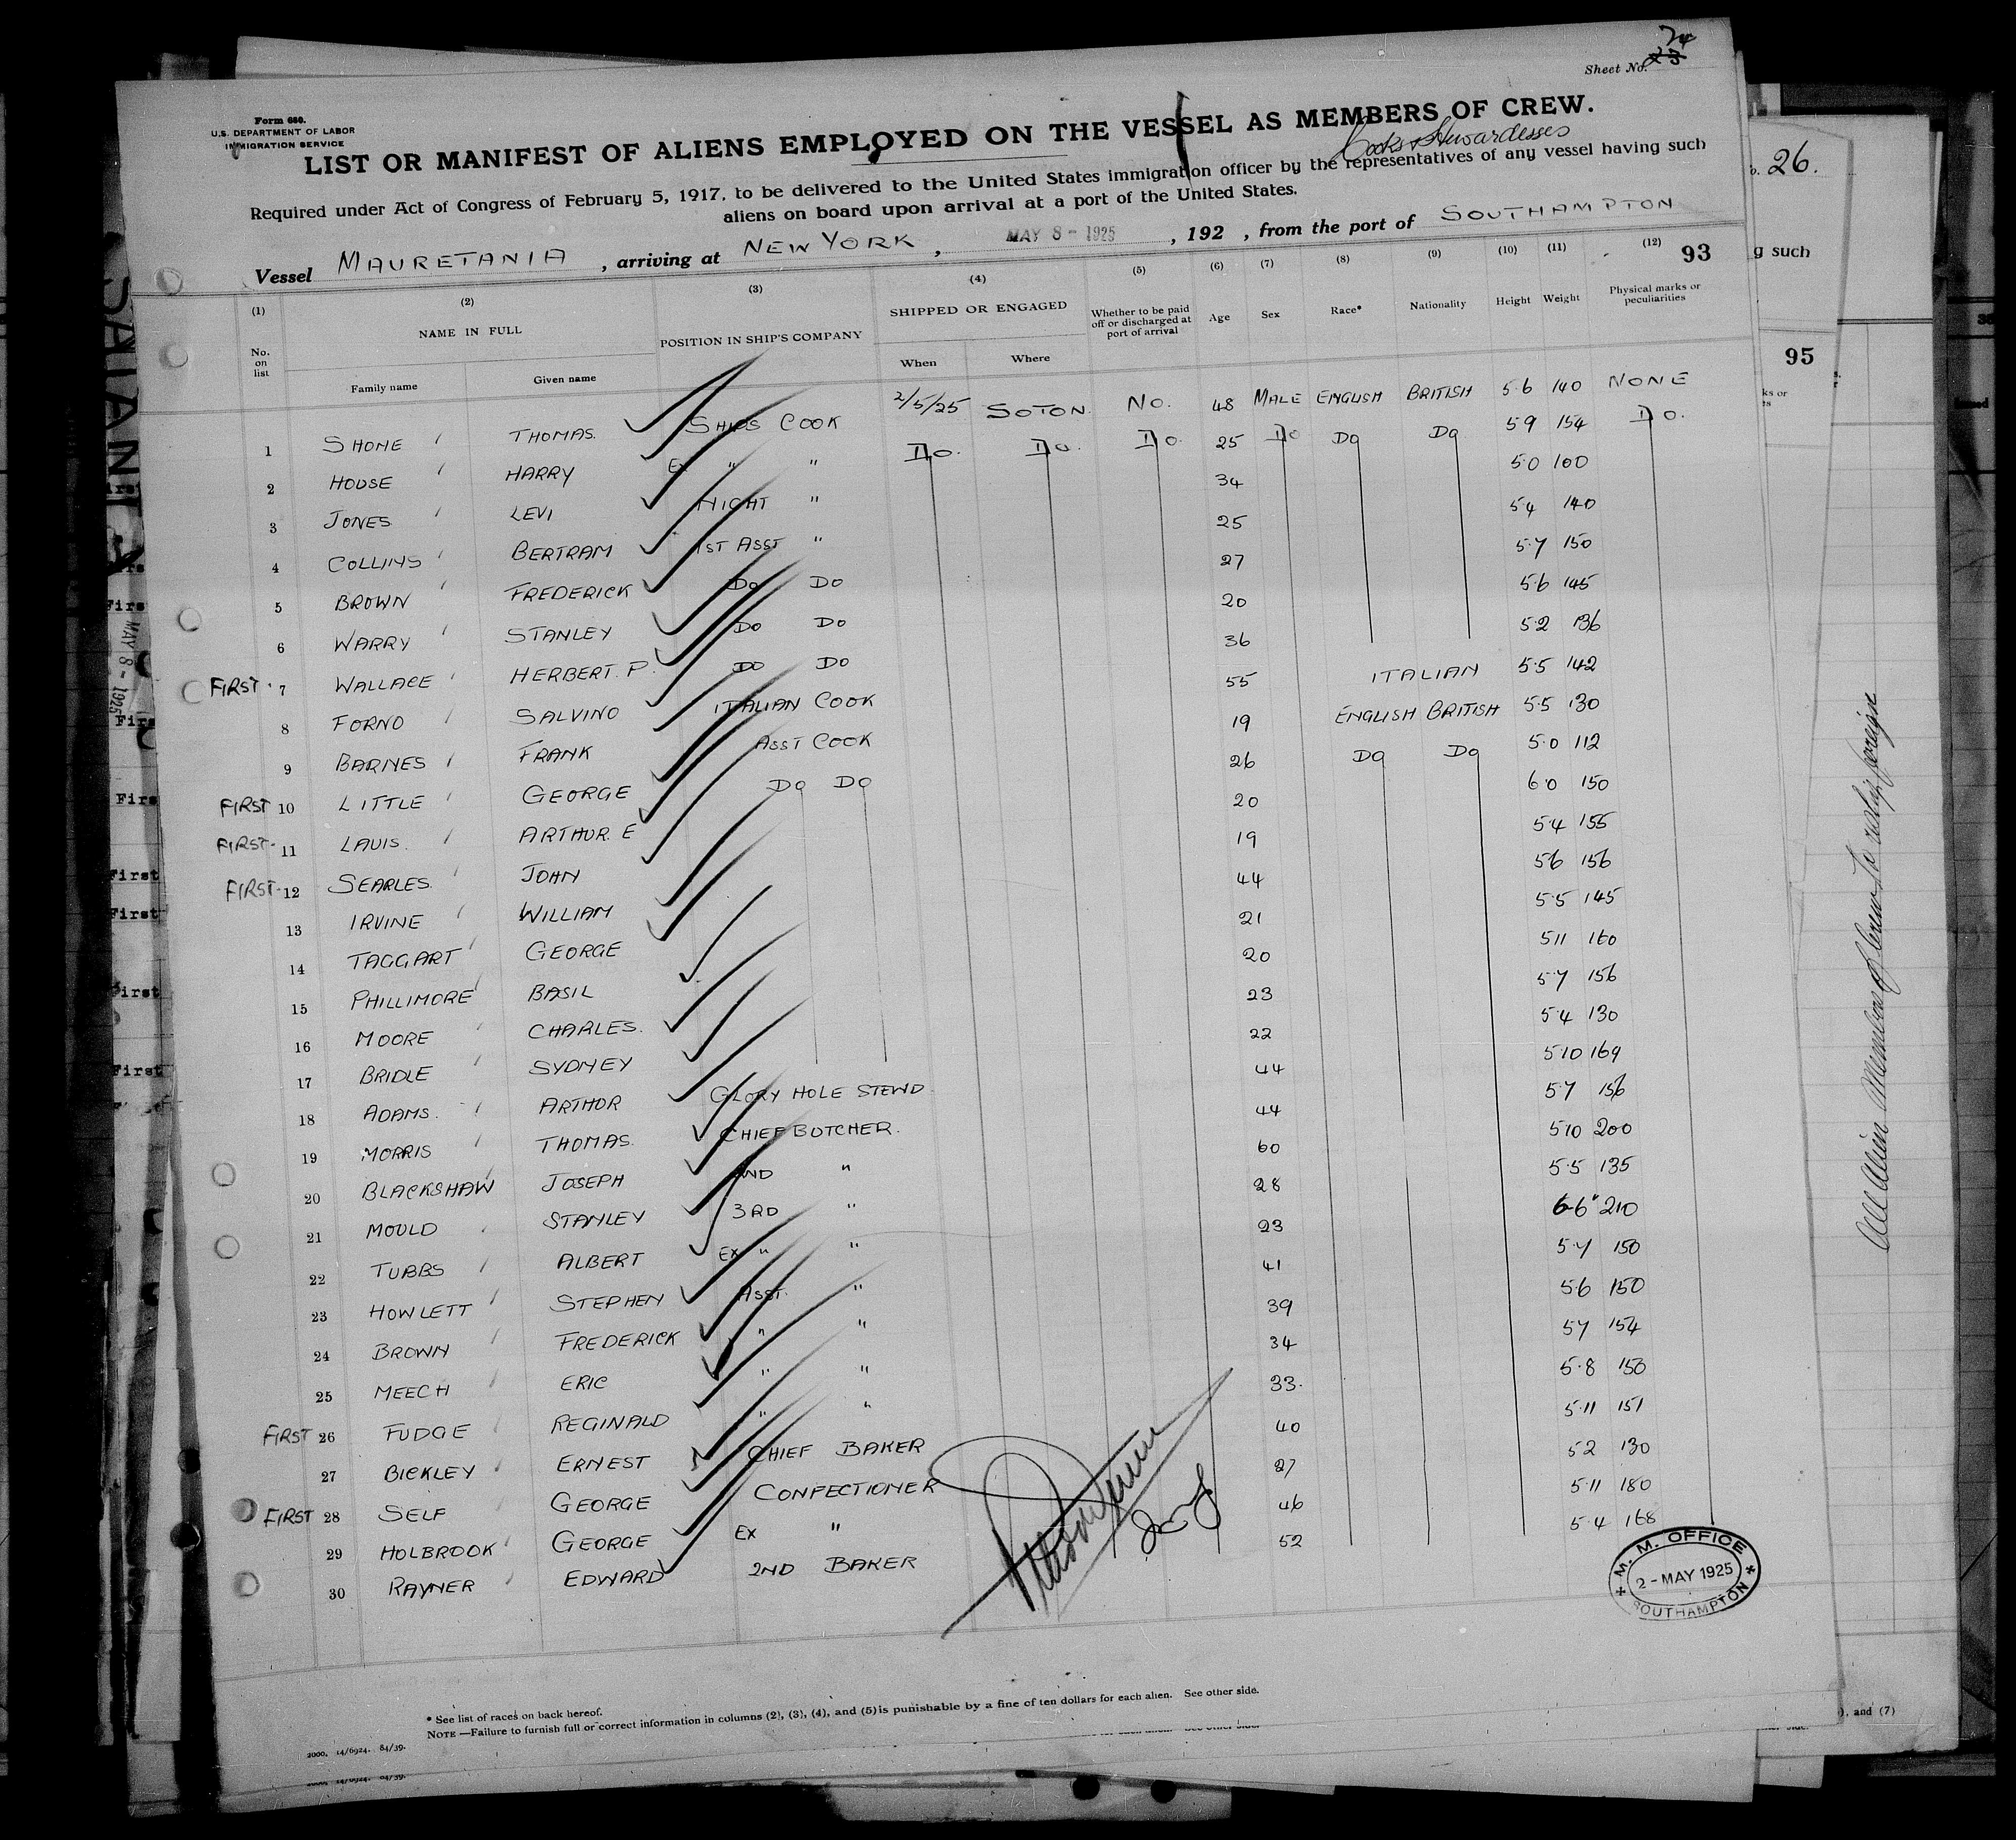 Sheet No. 23 24
Form 680.
U.S. DEPARTMENT OF LABOR
IMMIGRATION SERVICE
LIST OR MANIFEST OF ALIENS EMPLOYED ON THE VESSEL AS MEMBERS OF CREW.
Cooks & Stewardesses
Required under Act of Congress of February 5, 1917, to be delivered to the United States immigration officer by the representatives of any vessel having such
aliens on board upon arrival at a port of the United States.
Vessel MAURETANIA, arriving at NEW YORK, MAY 8 - 1925, 192 , from the port of SOUTHAMPTON
93
(1) (2) (3) (4) (5) (6) (7) (8) (9) (10) (11) (12)
No. on list NAME IN FULL Family name Given name POSITION IN SHIP'S COMPANY SHIPPED OR ENGAGED When Where Whether to be paid off or discharged at port of arrival Age Sex Race* Nationality Height Weight Physical marks or peculiarities
1 SHONE THOMAS. SHIPS COOK 2/5/25 SOTON. NO. 48 MALE ENGLISH BRITISH 5·6 140 NONE
2 HOUSE HARRY Ex " " Do. Do. Do. 25 Do Do Do 5 9 154 Do.
3 JONES LEVI NIGHT " 34 5·0 100
4 COLLINS BERTRAM 1ST ASST " 25 5·4 140
5 BROWN FREDERICK Do Do 27 5·7 150
6 WARRY STANLEY Do Do 20 5·6 145
FIRST 7 WALLACE HERBERT. P. Do Do 36 5·2 136
8 FORNO SALVINO ITALIAN COOK 55 ITALIAN 5·5 142
9 BARNES FRANK ASST COOK 19 ENGLISH BRITISH 5·5 130
FIRST 10 LITTLE GEORGE Do Do 26 Do Do 5·0 112
FIRST 11 LAVIS. ARTHUR. E 20 6·0 150
FIRST 12 SEARLES. JOHN 19 5·4 155
13 IRVINE WILLIAM 44 5·6 156
14 TAGGART GEORGE 21 5·5 145
15 PHILLIMORE BASIL 20 5 11 160
16 MOORE CHARLES. 23 5·7 156
17 BRIDLE SYDNEY 22 5·4 130
18 ADAMS. ARTHUR GLORY HOLE STEWD. 44 5 10 169
19 MORRIS THOMAS. CHIEF BUTCHER. 44 5·7 156
20 BLACKSHAW JOSEPH 2ND " 60 5 10 200
21 MOULD STANLEY 3RD " 28 5·5 135
22 TUBBS ALBERT Ex " " 23 6·6 210
23 HOWLETT STEPHEN ASST. " 41 5·7 150
24 BROWN FREDERICK " " 39 5·6 150
25 MEECH ERIC " " 34 5 7 154
FIRST 26 FUDGE REGINALD " " 33. 5·8 150
27 BICKLEY ERNEST CHIEF BAKER 40 5·11 151
FIRST 28 SELF GEORGE CONFECTIONER 27 5 2 130
29 HOLBROOK GEORGE Ex " 46 5·11 180
30 RAYNER EDWARD 2ND BAKER 52 5·4 168
M. M. OFFICE
2 - MAY 1925
SOUTHAMPTON
* See list of races on back hereof.
NOTE.—Failure to furnish full or correct information in columns (2), (3), (4), and (5) is punishable by a fine of ten dollars for each alien. See other side.
2000. 14/6924. 84/39.
26.
g such
95
All Alien Members of Crew to reship foreign
), and (7)
MAY 8 - 1925
First
First
First
First
First